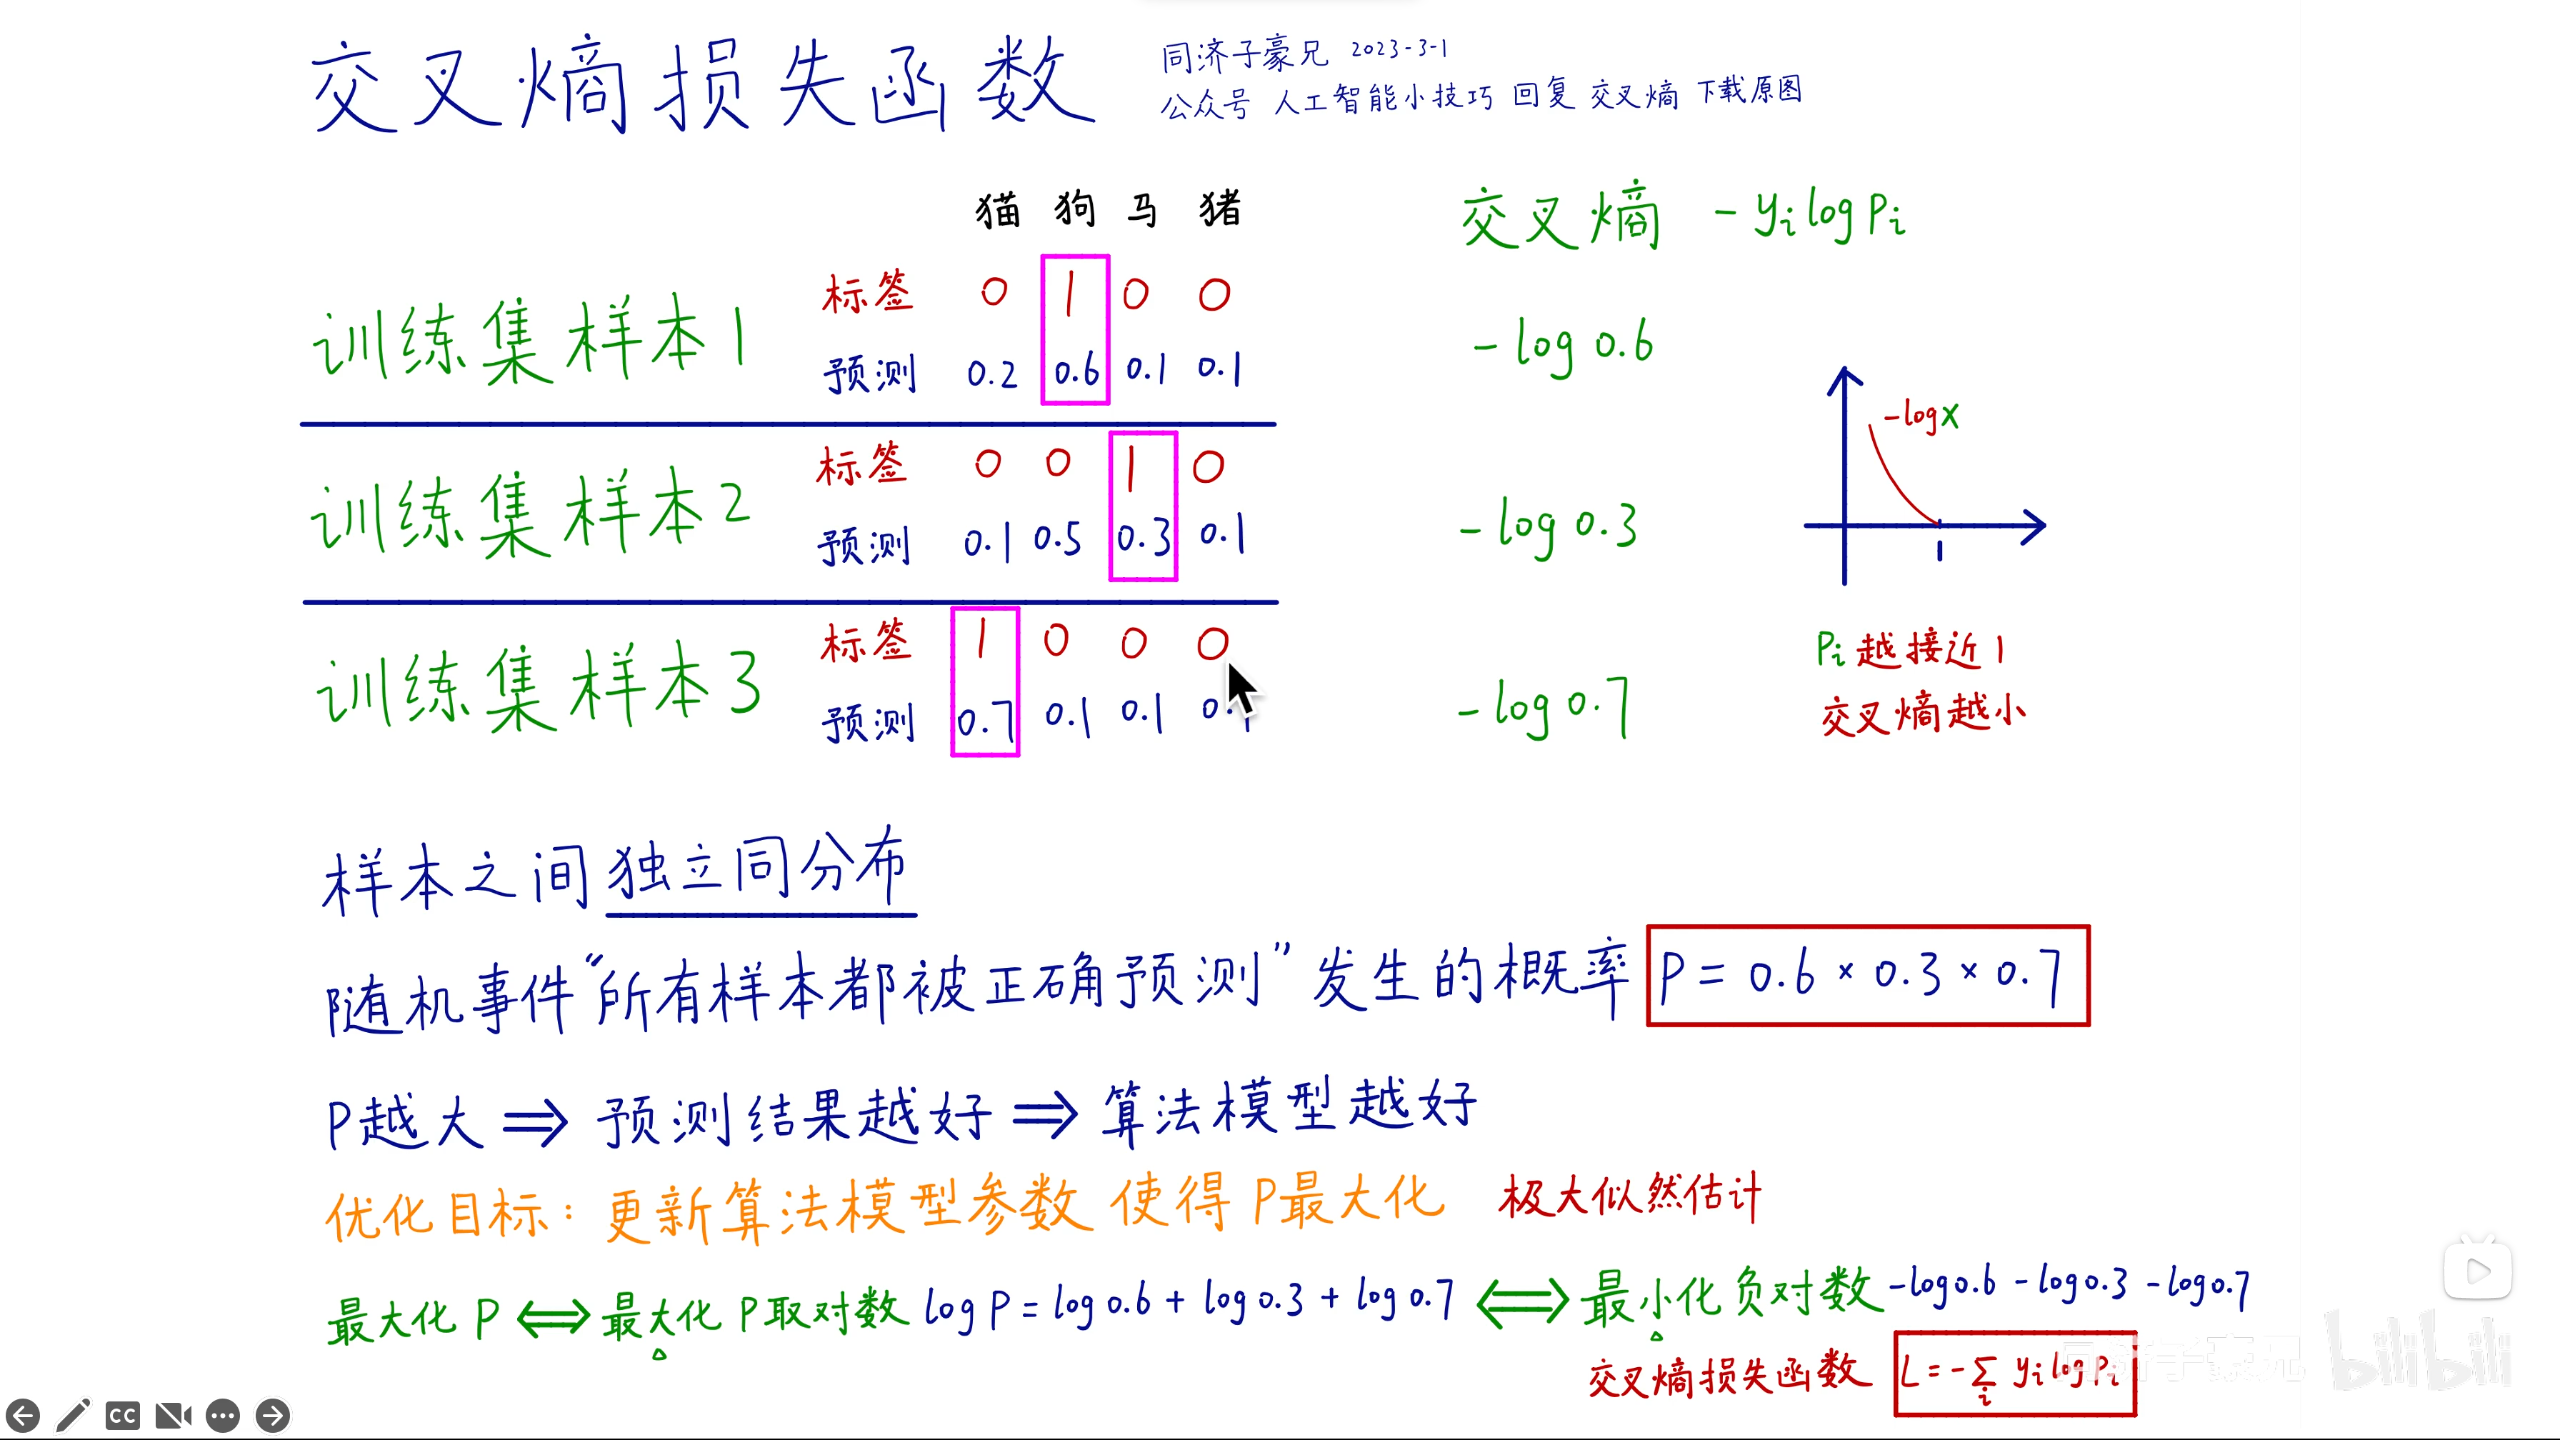 交叉熵损失函数
同济子豪兄 2023-3-1
公众号 人工智能小技巧 回复 交叉熵 下载原图
猫 狗 马 猪
交叉熵 -yᵢlog Pᵢ
训练集样本1
标签 0 1 0 0
预测 0.2 0.6 0.1 0.1
-log 0.6
训练集样本2
标签 0 0 1 0
预测 0.1 0.5 0.3 0.1
-log 0.3
-logx
1
训练集样本3
标签 1 0 0 0
预测 0.7 0.1 0.1
-log 0.7
Pᵢ越接近1
交叉熵越小
样本之间独立同分布
随机事件“所有样本都被正确预测”发生的概率 P = 0.6 × 0.3 × 0.7
P越大 ⇒ 预测结果越好 ⇒ 算法模型越好
优化目标: 更新算法模型参数 使得 P最大化 极大似然估计
最大化 P ⇔ 最大化 P取对数 log P = log 0.6 + log 0.3 + log 0.7 ⇔ 最小化负对数 -log0.6 -log0.3 -log0.7
交叉熵损失函数 L = -∑ᵢ yᵢ log Pᵢ
同济子豪兄 bilibili
CC